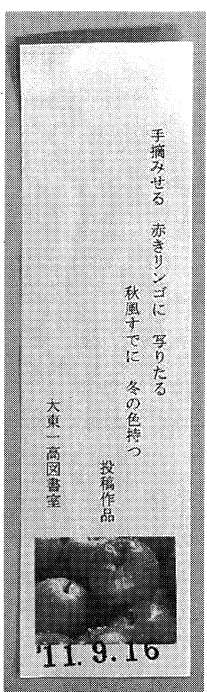 手摘みせる　赤きリンゴに　写りたる
秋風すでに　冬の色持つ
投稿作品
大東一高図書室
'11.9.16